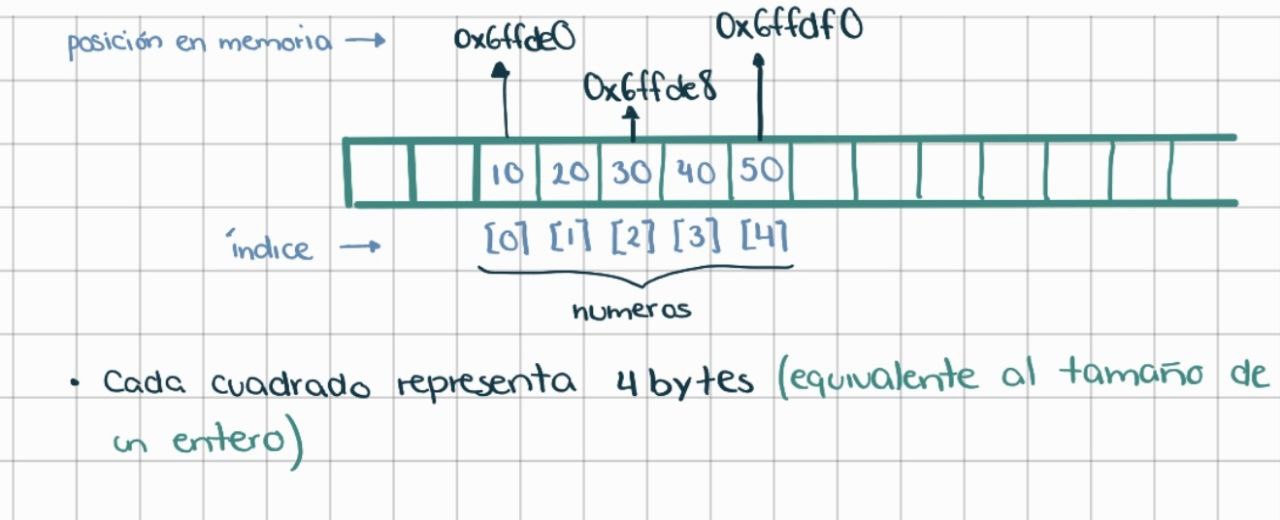 posición en memoria → 0x6ffde0 0x6ffdf0
0x6ffde8
10 20 30 40 50
índice → [0] [1] [2] [3] [4]
numeros
• Cada cuadrado representa 4 bytes (equivalente al tamaño de
un entero)